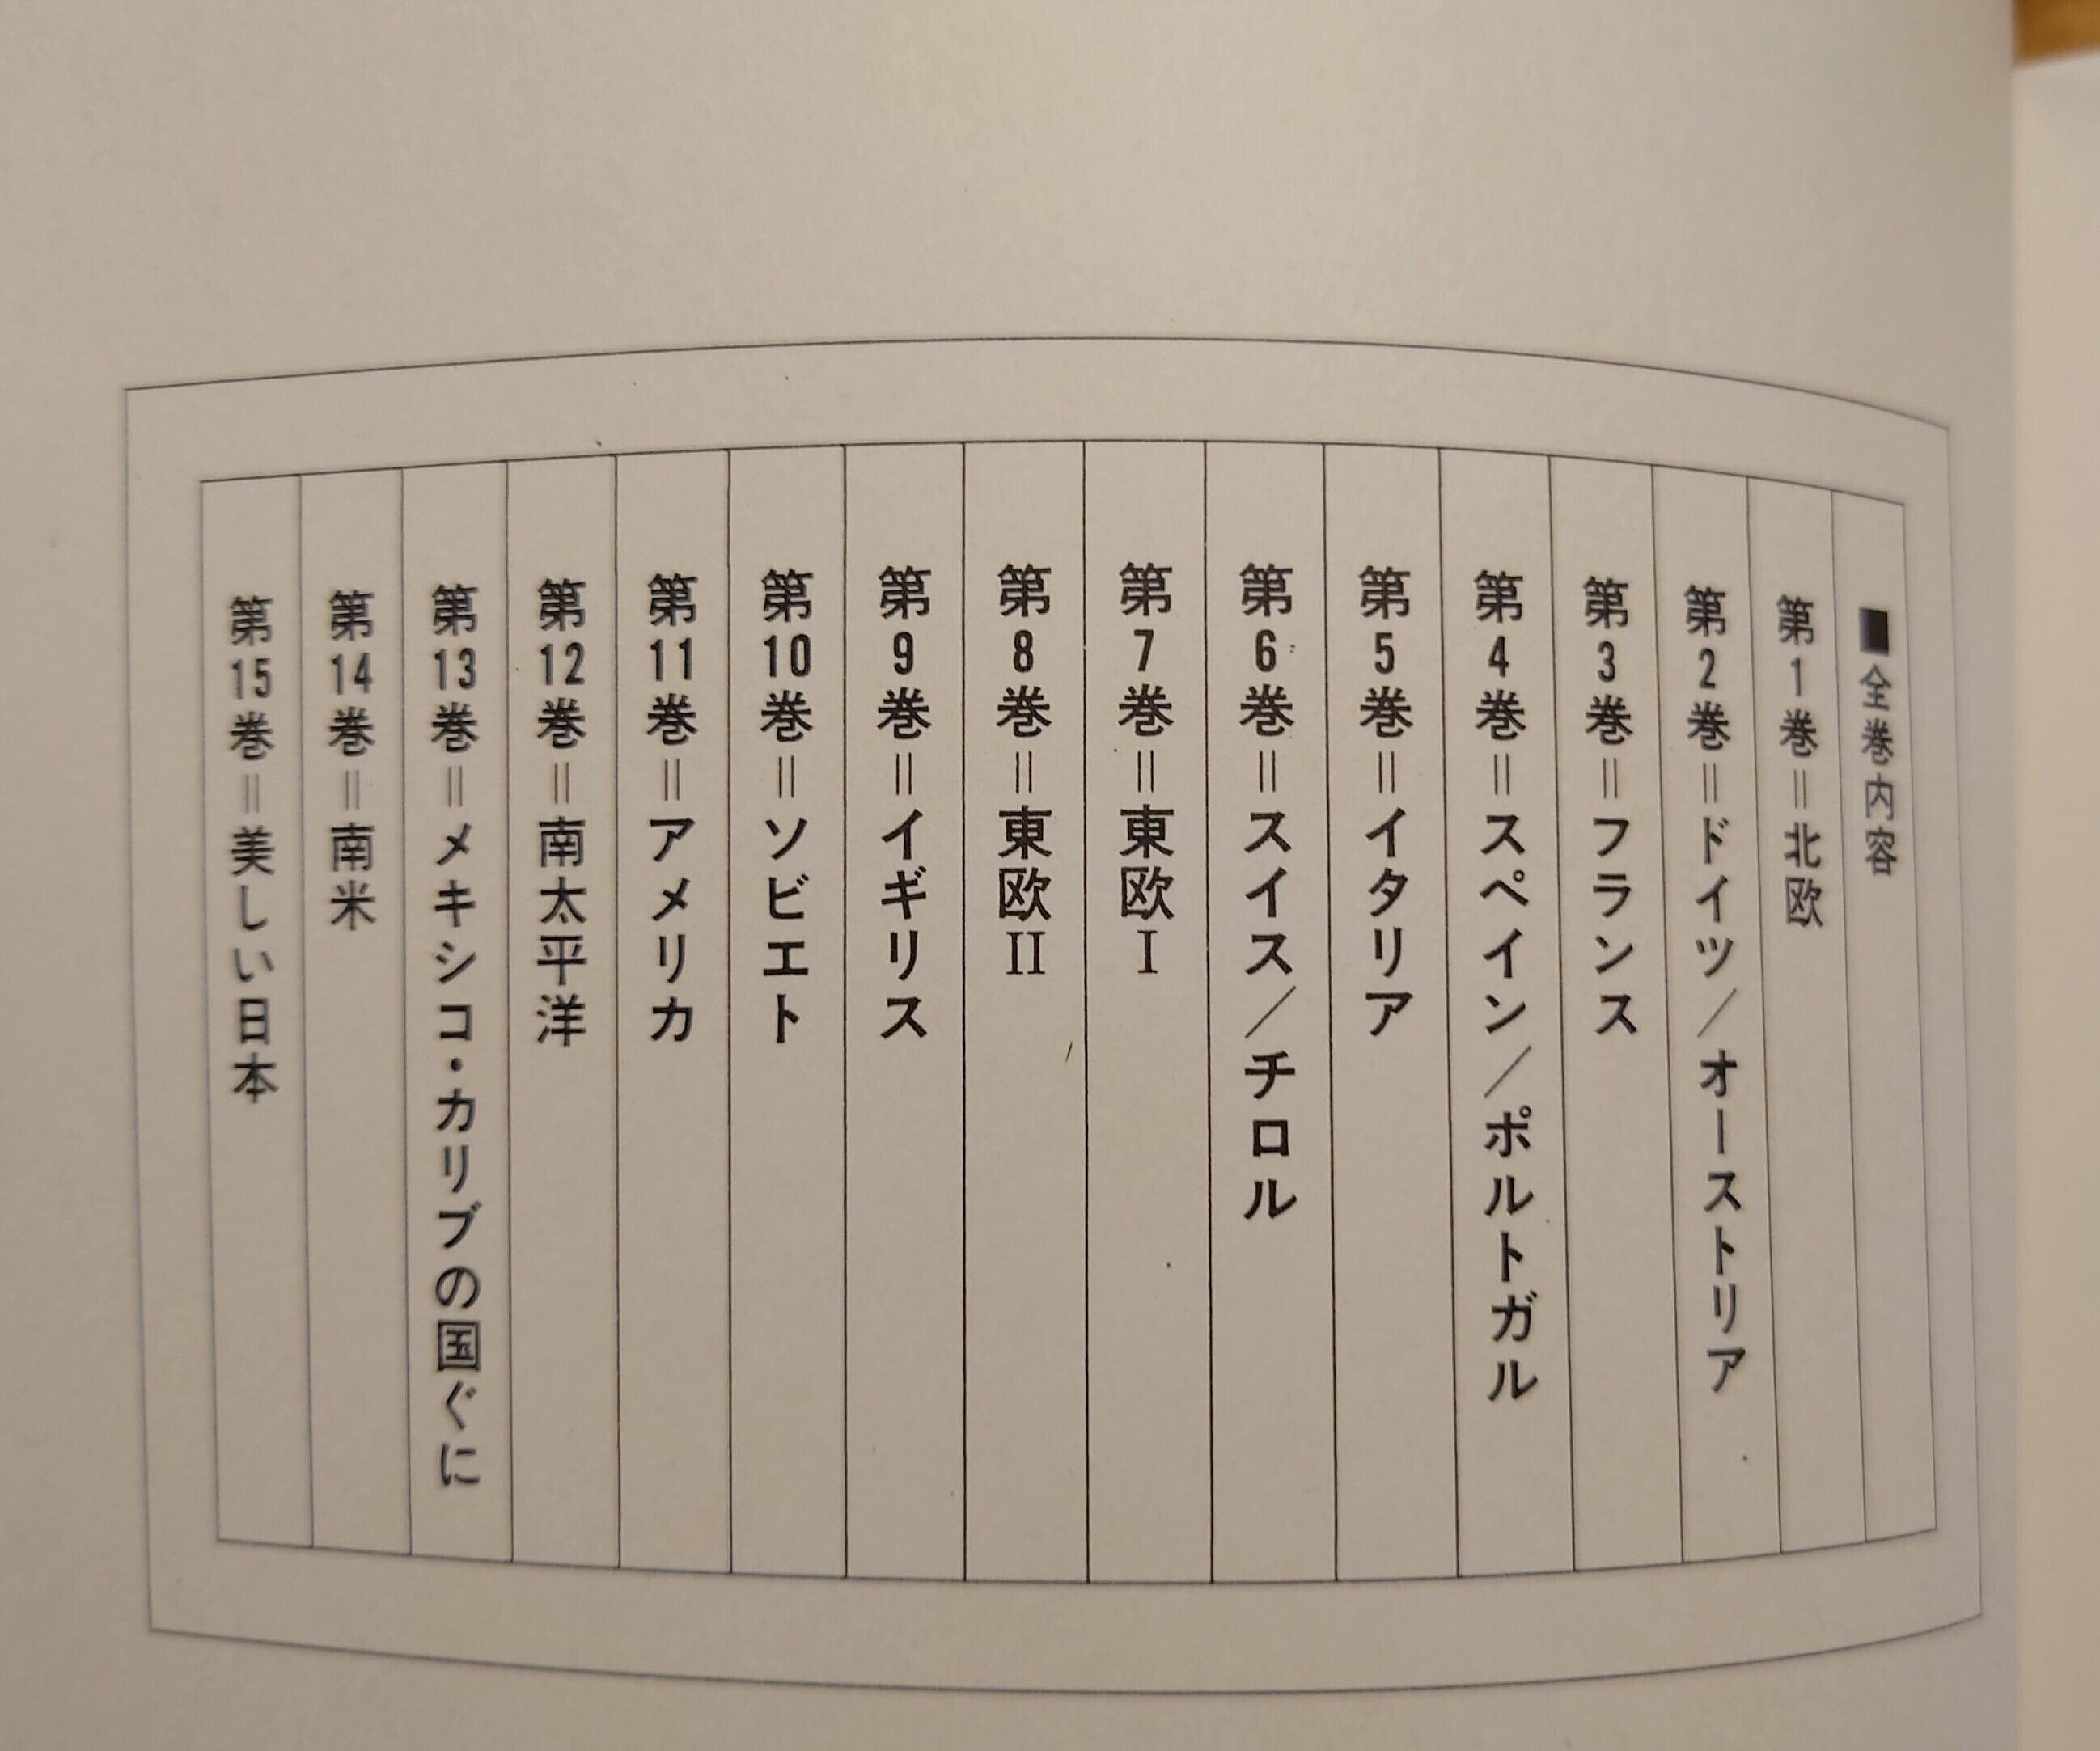 ■全巻内容
第1巻＝北欧
第2巻＝ドイツ／オーストリア
第3巻＝フランス
第4巻＝スペイン／ポルトガル
第5巻＝イタリア
第6巻＝スイス／チロル
第7巻＝東欧Ⅰ
第8巻＝東欧Ⅱ
第9巻＝イギリス
第10巻＝ソビエト
第11巻＝アメリカ
第12巻＝南太平洋
第13巻＝メキシコ・カリブの国ぐに
第14巻＝南米
第15巻＝美しい日本